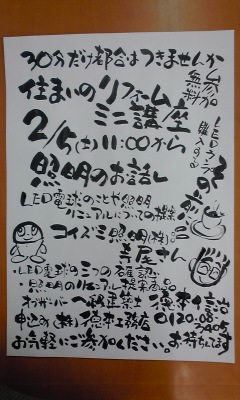 30分だけ都合はつきませんか
参加無料
住まいのリフォーム
ミニ講座
2/5(土)11:00から
LEDランプ
購入する
その前に
照明のお話し
LED電球のことや照明
リニューアルについての提案
コイズミ照明(株)
寺屋さん
・LED電球の三つの確認
・照明のリニューアル提案商品
オブザーバー 一級建築士 徳本信治
申込み(株)徳本工務店 0120-08-
お気軽にご参加ください。お待ちしてます